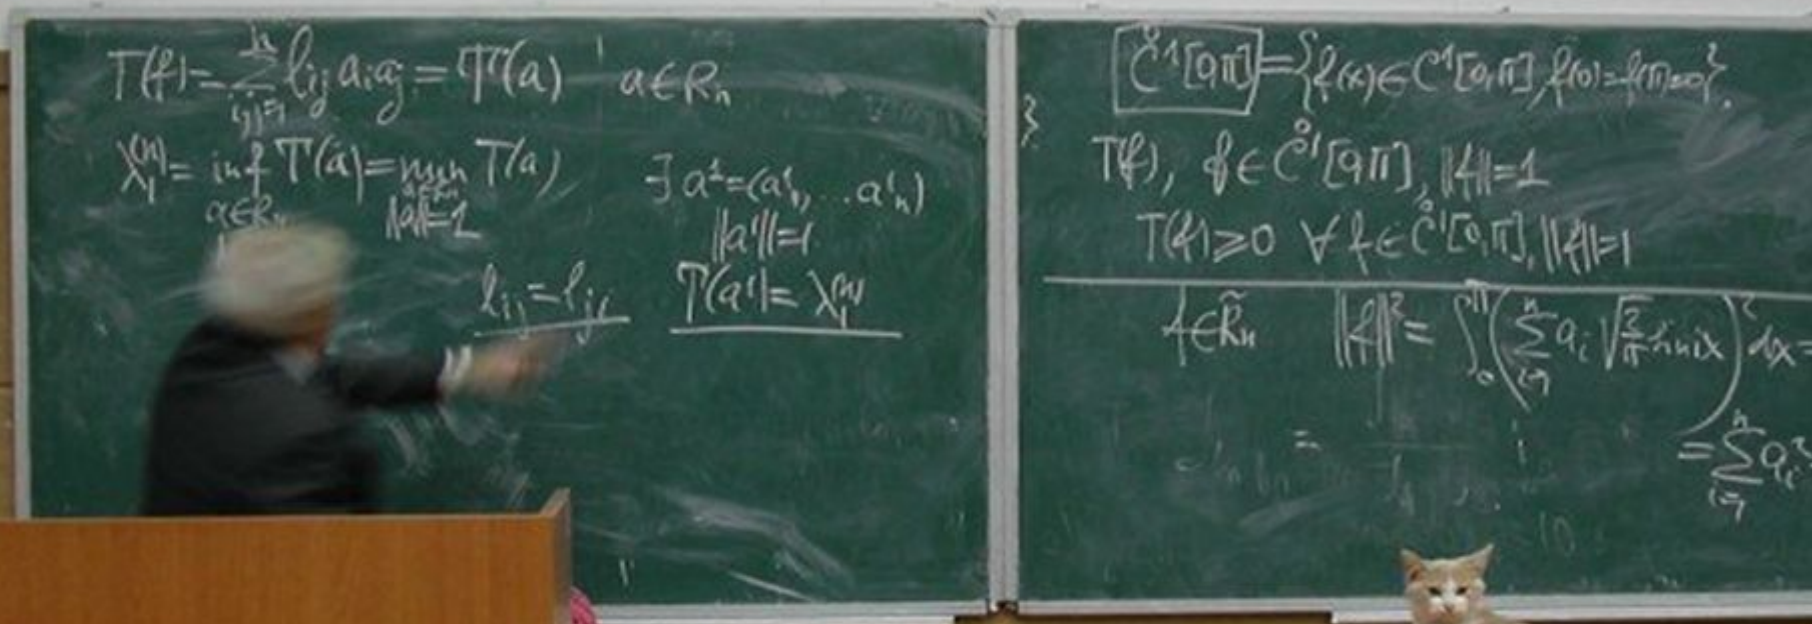 T(f)=\sum_{i,j=1}^{n} l_{ij} a_i a_j = T(a)   a∈R_n
λ_1^{(n)} = inf_{a∈R_n} T(a) = min_{a∈R_n, ||a||=1} T(a)
∃ a^1=(a^1_1, ... a^1_n)
||a^1||=1
l_{ij}=l_{ji}
T(a^1)=λ_1^{(n)}
}
C̊^1[0,π] = {f(x)∈C^1[0,π], f(0)=f(π)=0}.
T(f), f∈C̊^1[0,π], ||f||=1
T(f)⩾0 ∀f∈C̊^1[0,π], ||f||=1
f∈R̃_n   ||f||^2 = \int_0^π (\sum_{i=1}^{n} a_i \sqrt{\frac{2}{π}} sin ix)^2 dx =
= \sum_{i=1}^{n} a_i^2